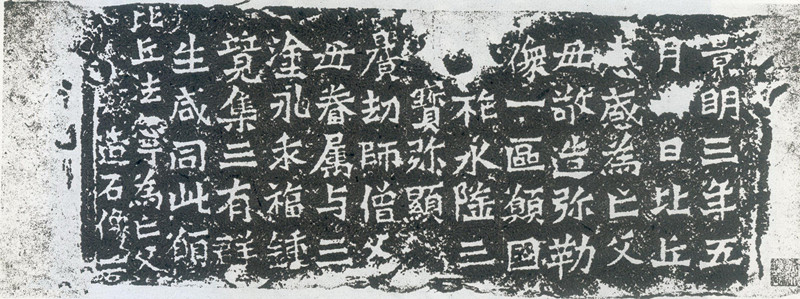 景明三年五
月日比丘
惠感為亡父
母敬造弥勒
像一區願國
祚永隆三
寶弥顯
曠劫師僧父
母眷属与三
塗永乖福鍾
竟集三有群
生咸同此願
比丘法寧為亡父
造石像一區